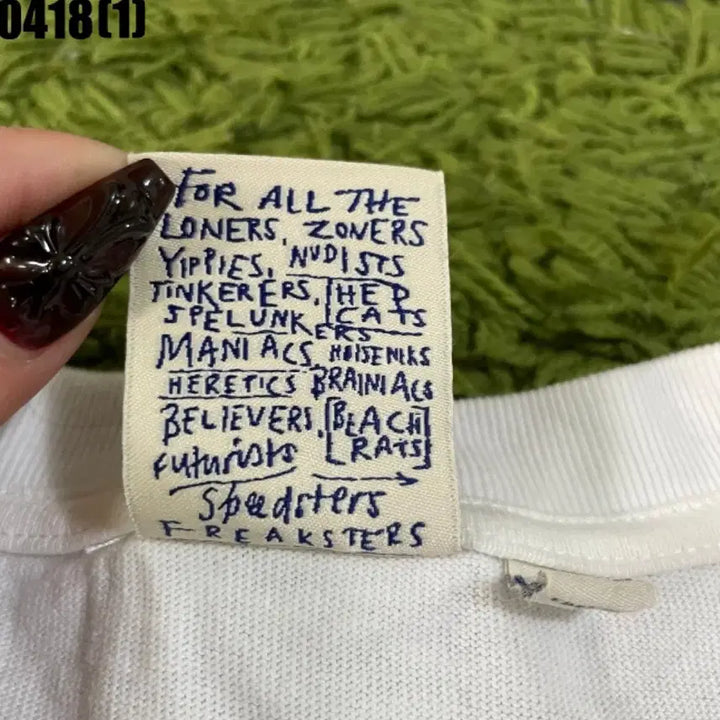 0418(1)
FOR ALL THE
LONERS, ZONERS
YIPPIES, NUDISTS
TINKERERS, HEP
SPELUNKERS CATS
MANIACS, NOISENIKS
HERETICS BRAINIACS
BELIEVERS, BEACH
RATS
futurists
Speedsters
FREAKSTERS